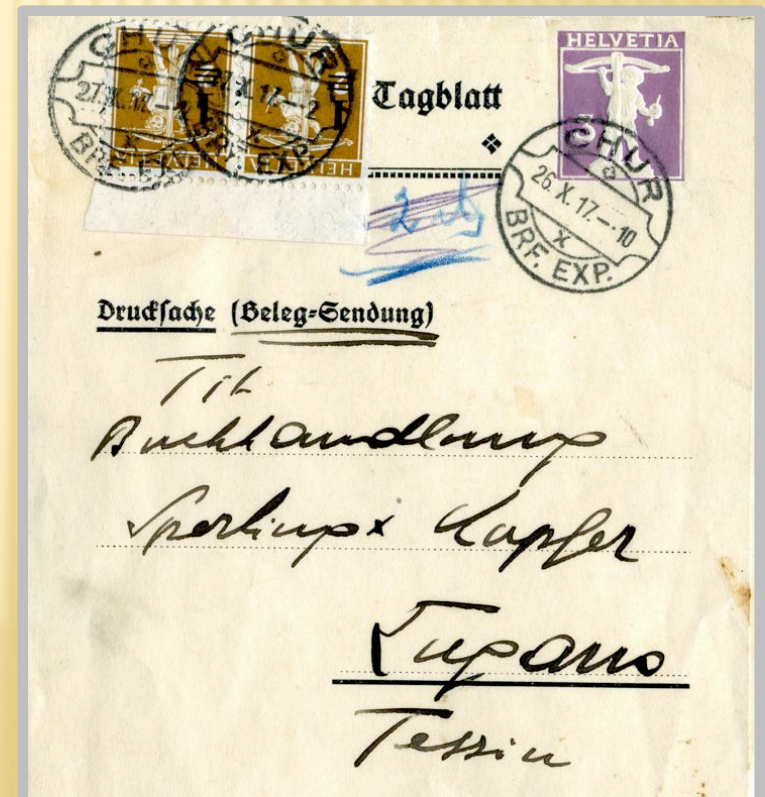 CHUR
27.X.17.–2
BRF. EXP.
HELVETIA
CHUR
27.X.17.–2
BRF. EXP.
HELVETIA
Tagblatt
HELVETIA
3
CHUR
26.X.17.–10
X
BRF. EXP.
Drucksache (Beleg-Sendung)
Tit
Buchhandlung
Sperling & Kupfer
Lugano
Tessin